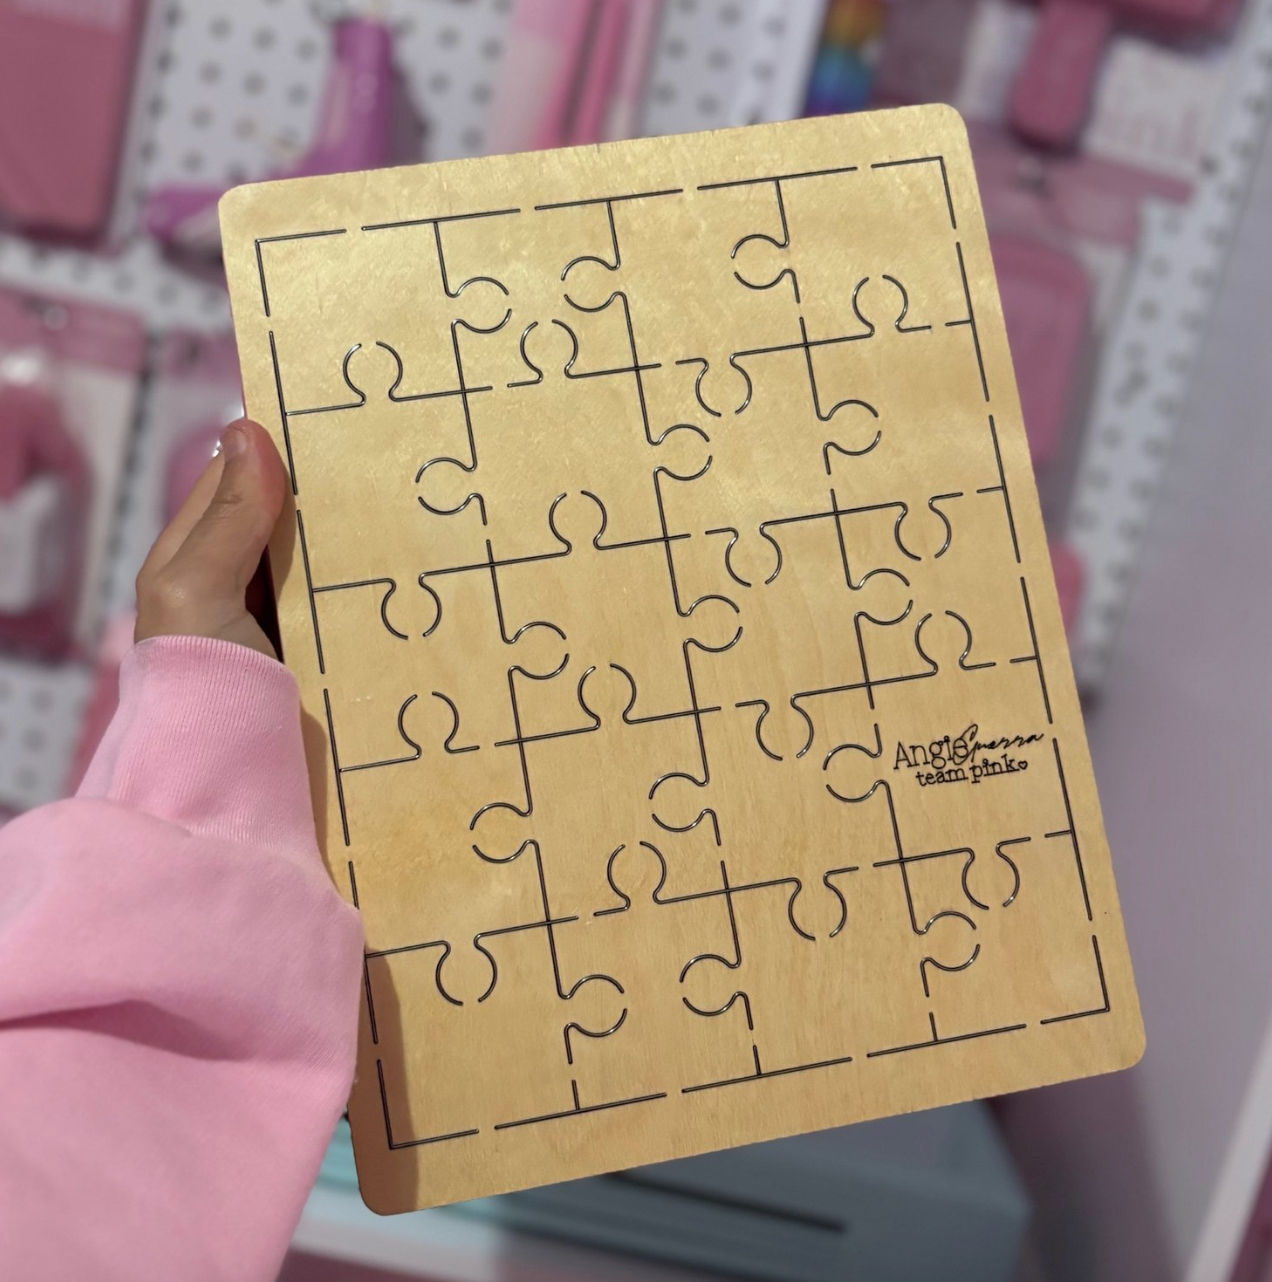 Angie Guerra
team pink